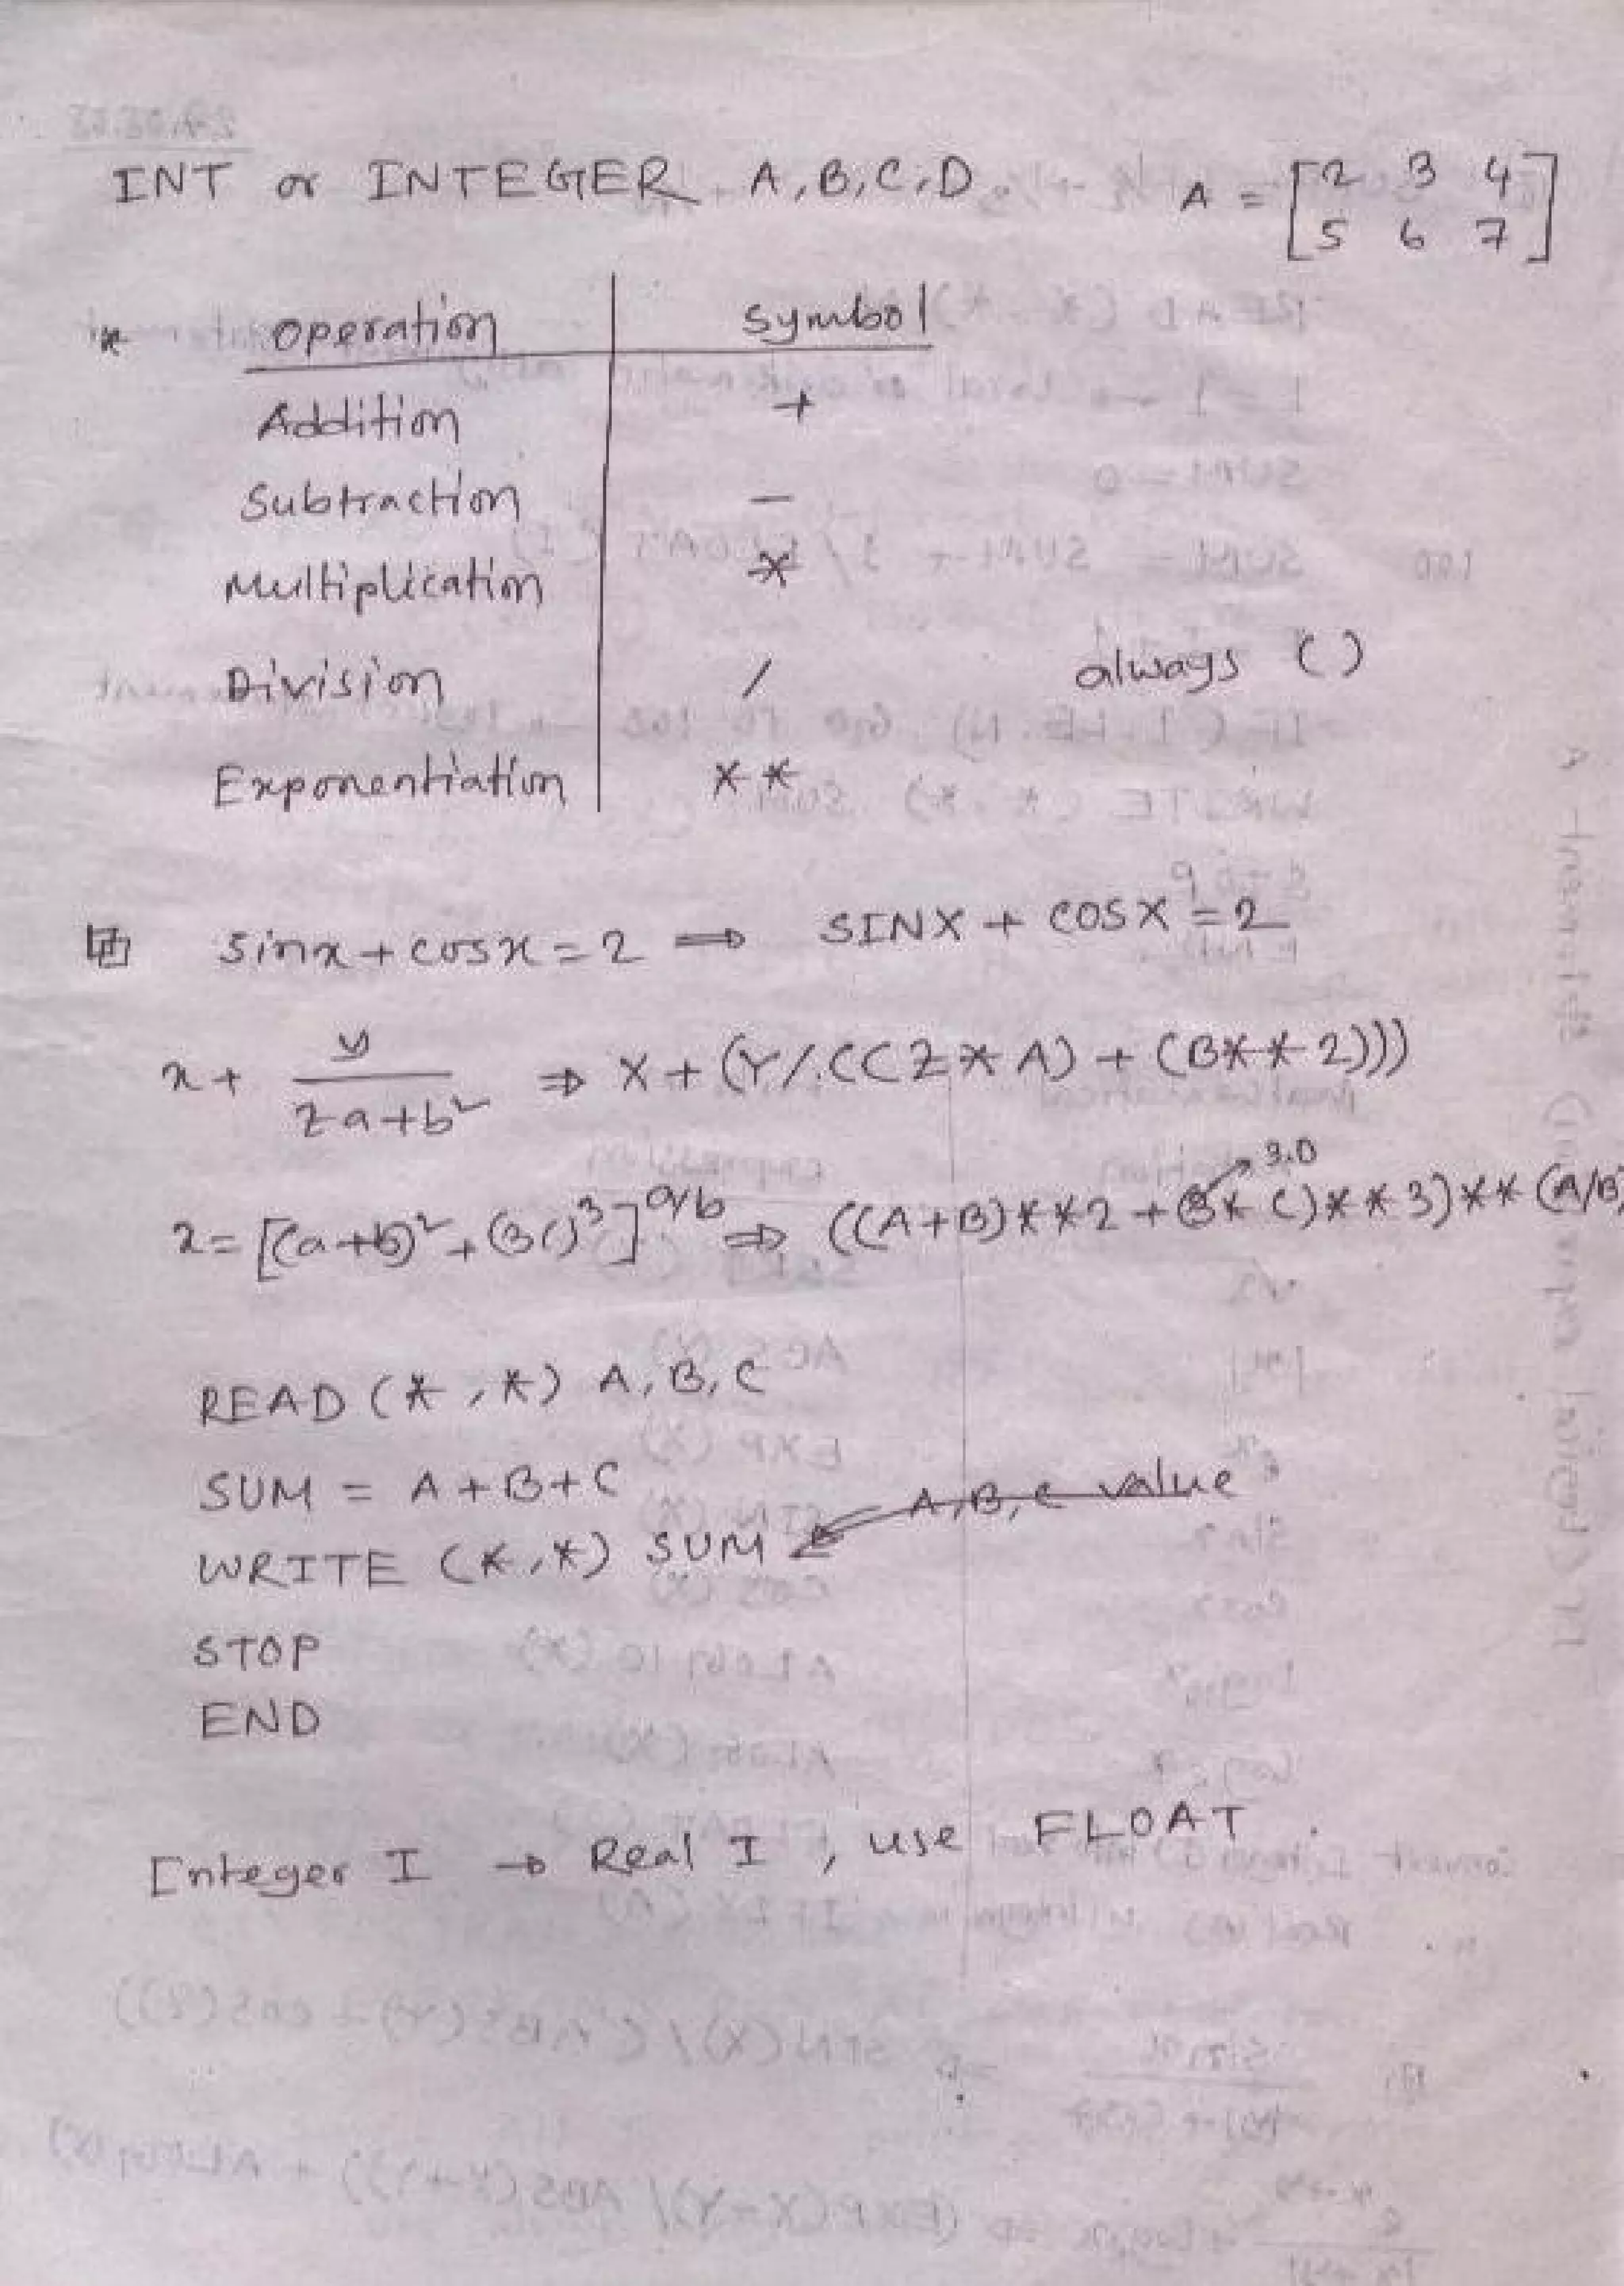 INT or INTEGER A,B,C,D A = [2 3 4
5 6 7]
* Operation Symbol
Addition +
Subtraction −
Multiplication *
Division / always ( )
Exponentiation **
sinx + cosx = 2 ⇒ SINX + COSX = 2
x + y/(za+b²) ⇒ X + (Y/((Z*A) + (B**2)))
3.0
z = [(a+b)² + (3c)³]^(a/b) ⇒ ((A+B)**2 + (3*C)**3)**(A/B)
READ (*,*) A,B,C
SUM = A+B+C
A,B,C value
WRITE (*,*) SUM
STOP
END
Integer I → Real I, use FLOAT.